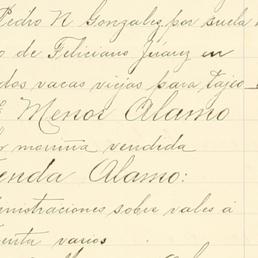 Pedro N Gonzalez, por suela
o de Feliciano Juarez en
dos vacas viejas para tajo
Menor Alamo
vendida
enda Alamo:
inistraciones sobre vales á
enta varios